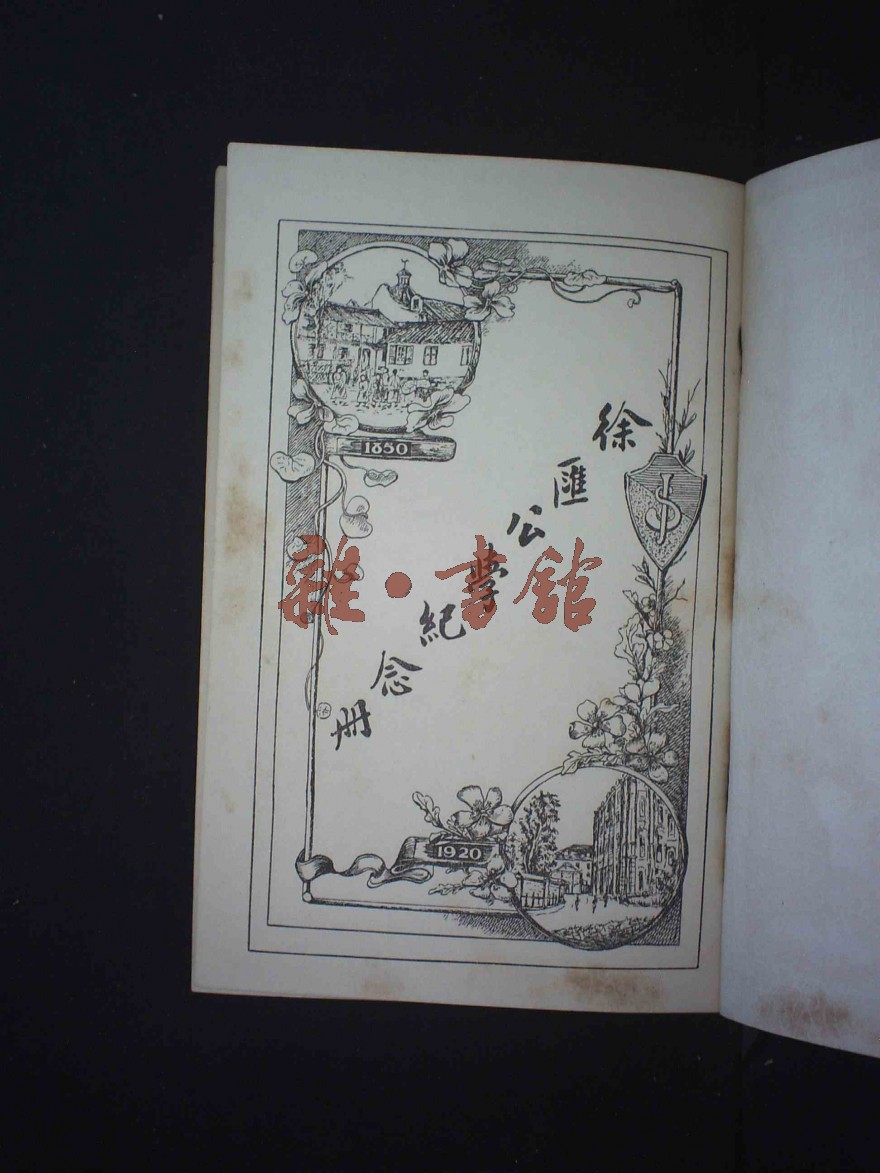 1850
徐匯公學紀念册
雜·書館
1920